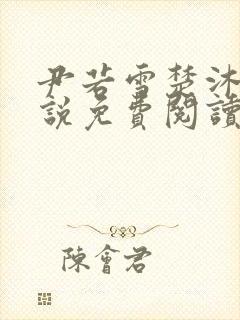 尹若雪楚沐
說免費閱讀
陳會君